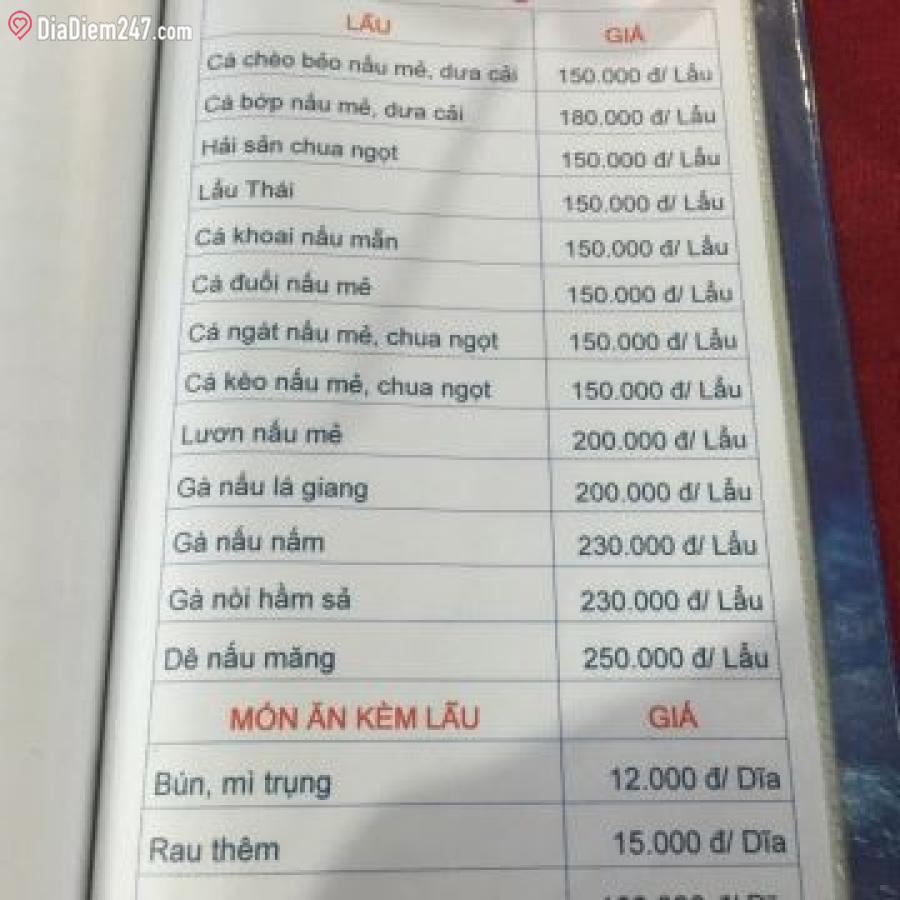 DiaDiem247.com
LẨU GIÁ
Cá chẻo bẻo nấu mẻ, dưa cải 150.000 đ/ Lẩu
Cá bớp nấu mẻ, dưa cải 180.000 đ/ Lẩu
Hải sản chua ngọt 150.000 đ/ Lẩu
Lẩu Thái 150.000 đ/ Lẩu
Cá khoai nấu mẳn 150.000 đ/ Lẩu
Cá đuối nấu mẻ 150.000 đ/ Lẩu
Cá ngát nấu mẻ, chua ngọt 150.000 đ/ Lẩu
Cá kèo nấu mẻ, chua ngọt 150.000 đ/ Lẩu
Lươn nấu mẻ 200.000 đ/ Lẩu
Gà nấu lá giang 200.000 đ/ Lẩu
Gà nấu nấm 230.000 đ/ Lẩu
Gà nòi hầm sả 230.000 đ/ Lẩu
Dê nấu măng 250.000 đ/ Lẩu
MÓN ĂN KÈM LẨU GIÁ
Bún, mì trụng 12.000 đ/ Dĩa
Rau thêm 15.000 đ/ Dĩa